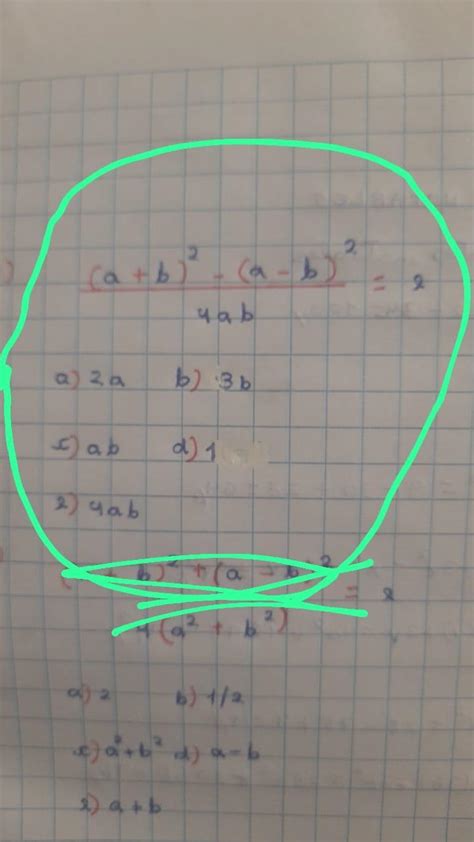 (a + b)² - (a - b)² = 2
4ab
a) 2a b) 3b
c) ab d) 1
2) 4ab
b)² + (a - b)² = 2
4(a² + b²)
a) 2 b) 1/2
c) a² + b² d) a - b
2) a + b